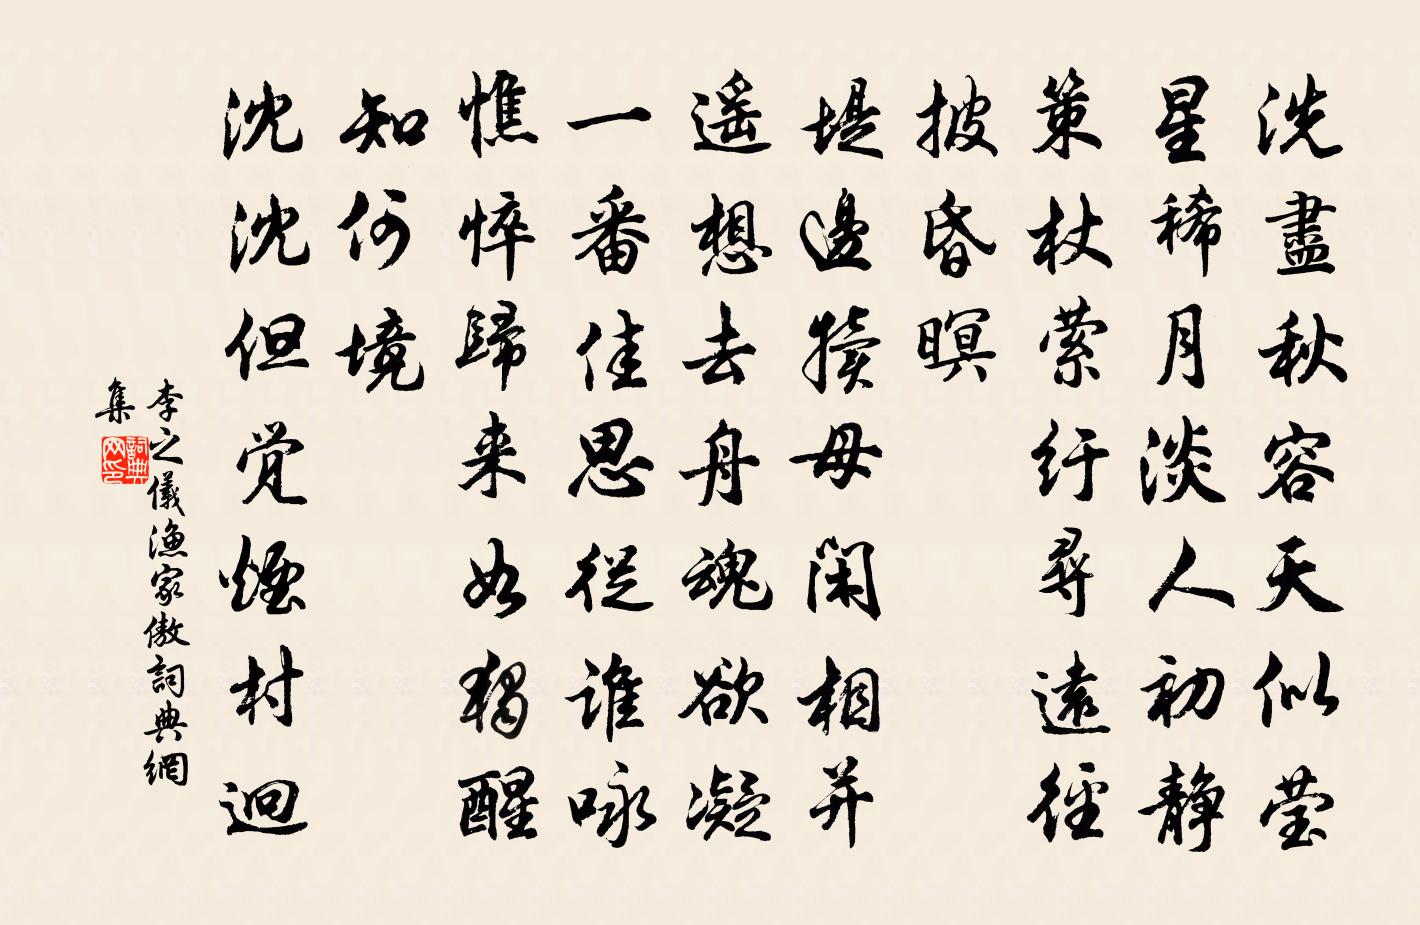 洗盡秋容天似瑩
星稀月淡人初静
策杖萦纡尋遠徑
披昏暝
堤邊犢母閑相并
遥想去舟魂欲凝
一番佳思從誰咏
憔悴歸来如獨醒
知何境
沈沈但覺煙村迥
李之儀漁家傲詞典網
集
詞典網印